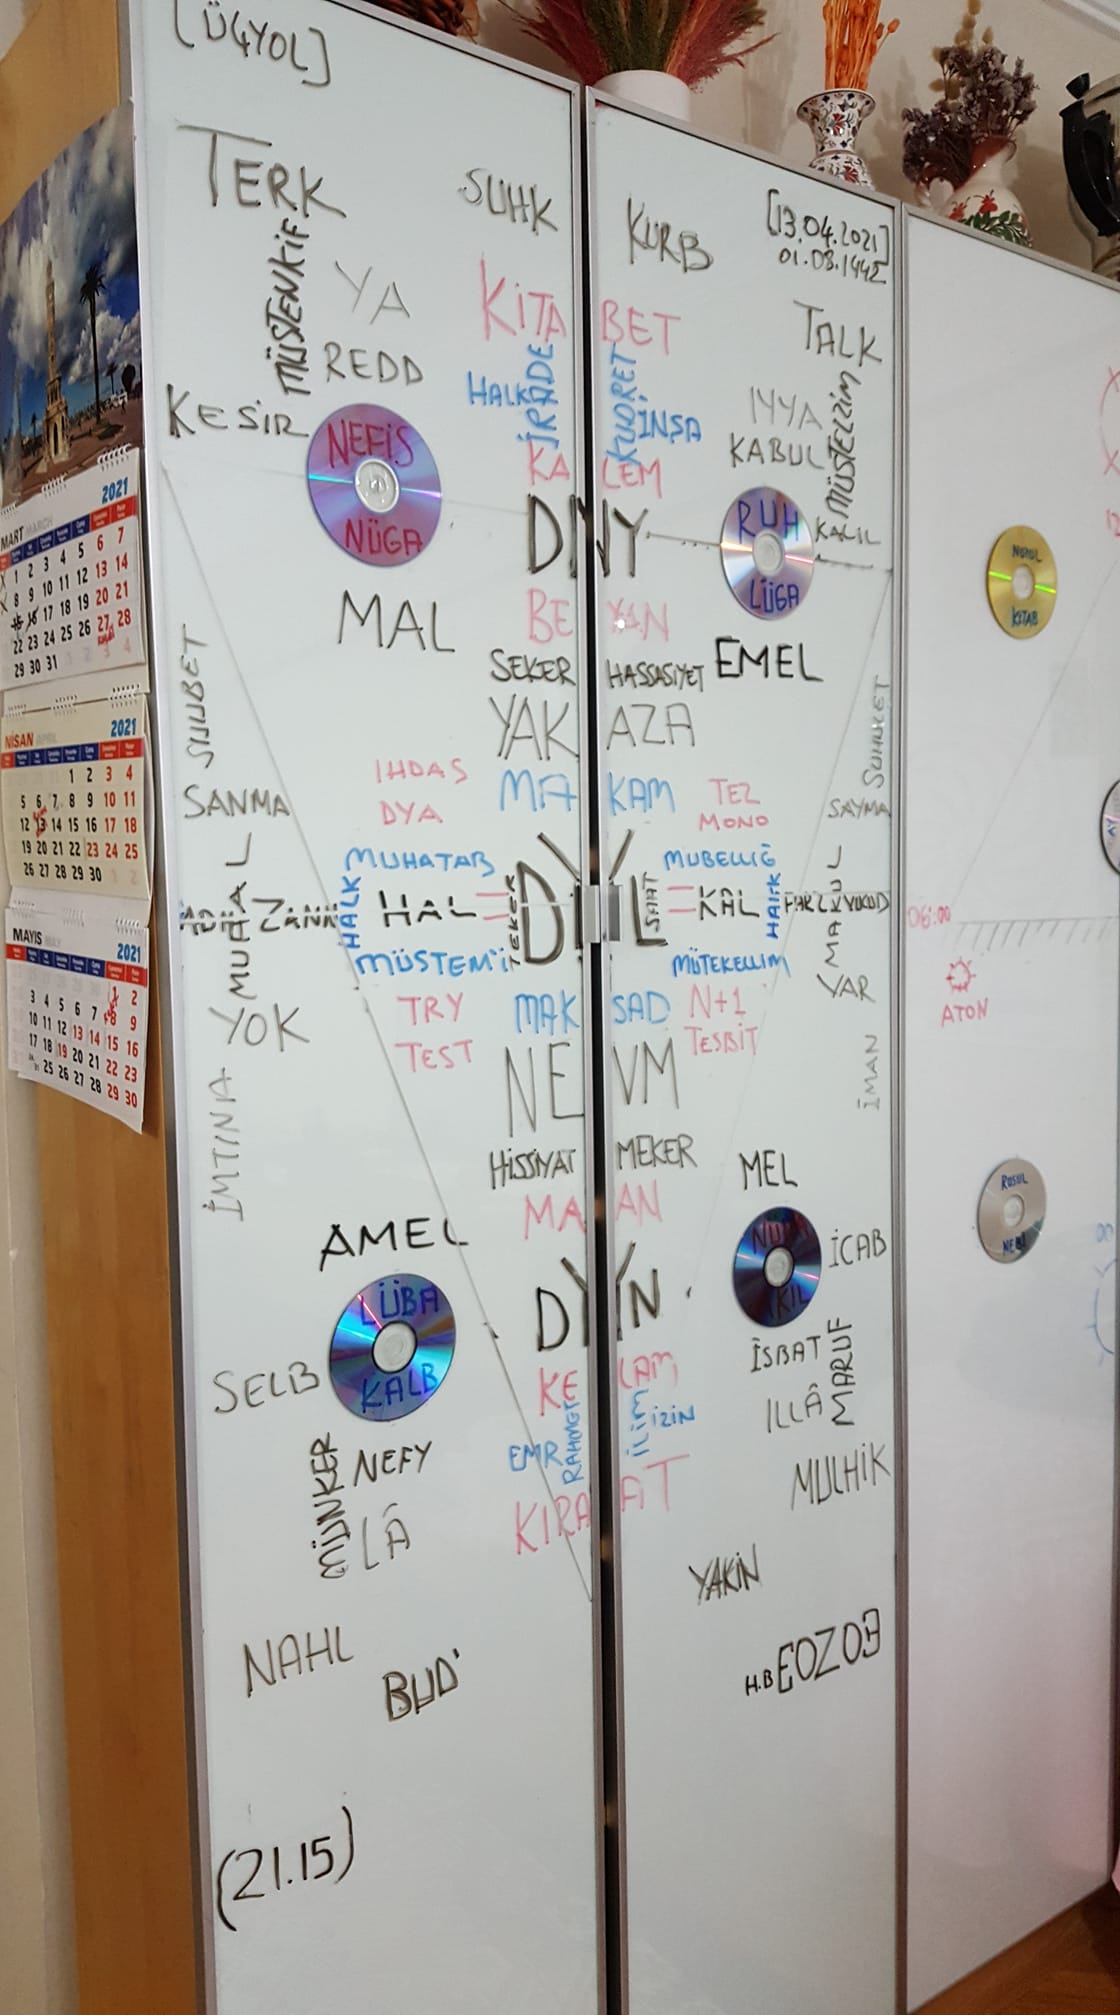 [ÜÇYOL]
TERK
SUHK
KURB
[13.04.2021]
01.09.1442
MÜSTENKİF
YA
KİTA BET
TALK
REDD
HALK
İRADE
KUDRET
İNŞA
IYYA
KABUL
MÜSTELZİM
KESİR
NEFİS
NÜGA
KA LEM
DNY
RUH
LÜGA
KALIL
MAL
BE YAN
EMEL
SEKER HASSASİYET
YAK AZA
SUHBET
SUHUKET
IHDAS
DYA
MA KAM
TEZ
MONO
SANMA
SAYMA
MUHATAB
MUBELLİĞ
MUHAL
ZANN
HALK
HAL
TEKER
DYL
SAAT
KAL
HALK
FARZ
VUCUD
MAKUL
MÜSTEMİ
MÜTEKELLİM
YAR
TRY
MAK SAD
N+1
YOK
TEST
TESBİT
NE VM
İMTİNA
İMAN
HİSSİYAT MEKER
MEL
MA AN
AMEL
İCAB
LÜBA
KALB
DYN
AKIL
SELB
KE LAM
İSBAT
MARUF
ILLÂ
EMR
RAHMET
İLİM
İZİN
MÜNKER
NEFY
LÂ
KIRA AT
MULHİK
YAKİN
NAHL
BUD'
H.B EOZOB
(21.15)
NÜZUL
KİTAB
06:00
ATON
RASUL
NEBİ
2021
MART MARCH
6 7
1 2 3 4 5 13 14
8 9 10 11 12 20 21
15 16 17 18 19 27 28
22 23 24 25 26
29 30 31
NİSAN APRIL 2021
1 2 3 4
5 6 7 8 9 10 11
12 13 14 15 16 17 18
19 20 21 22 23 24 25
26 27 28 29 30
MAYIS MAY 2021
1 2
3 4 5 6 7 8 9
10 11 12 13 14 15 16
17 18 19 20 21 22 23
24 25 26 27 28 29 30
31